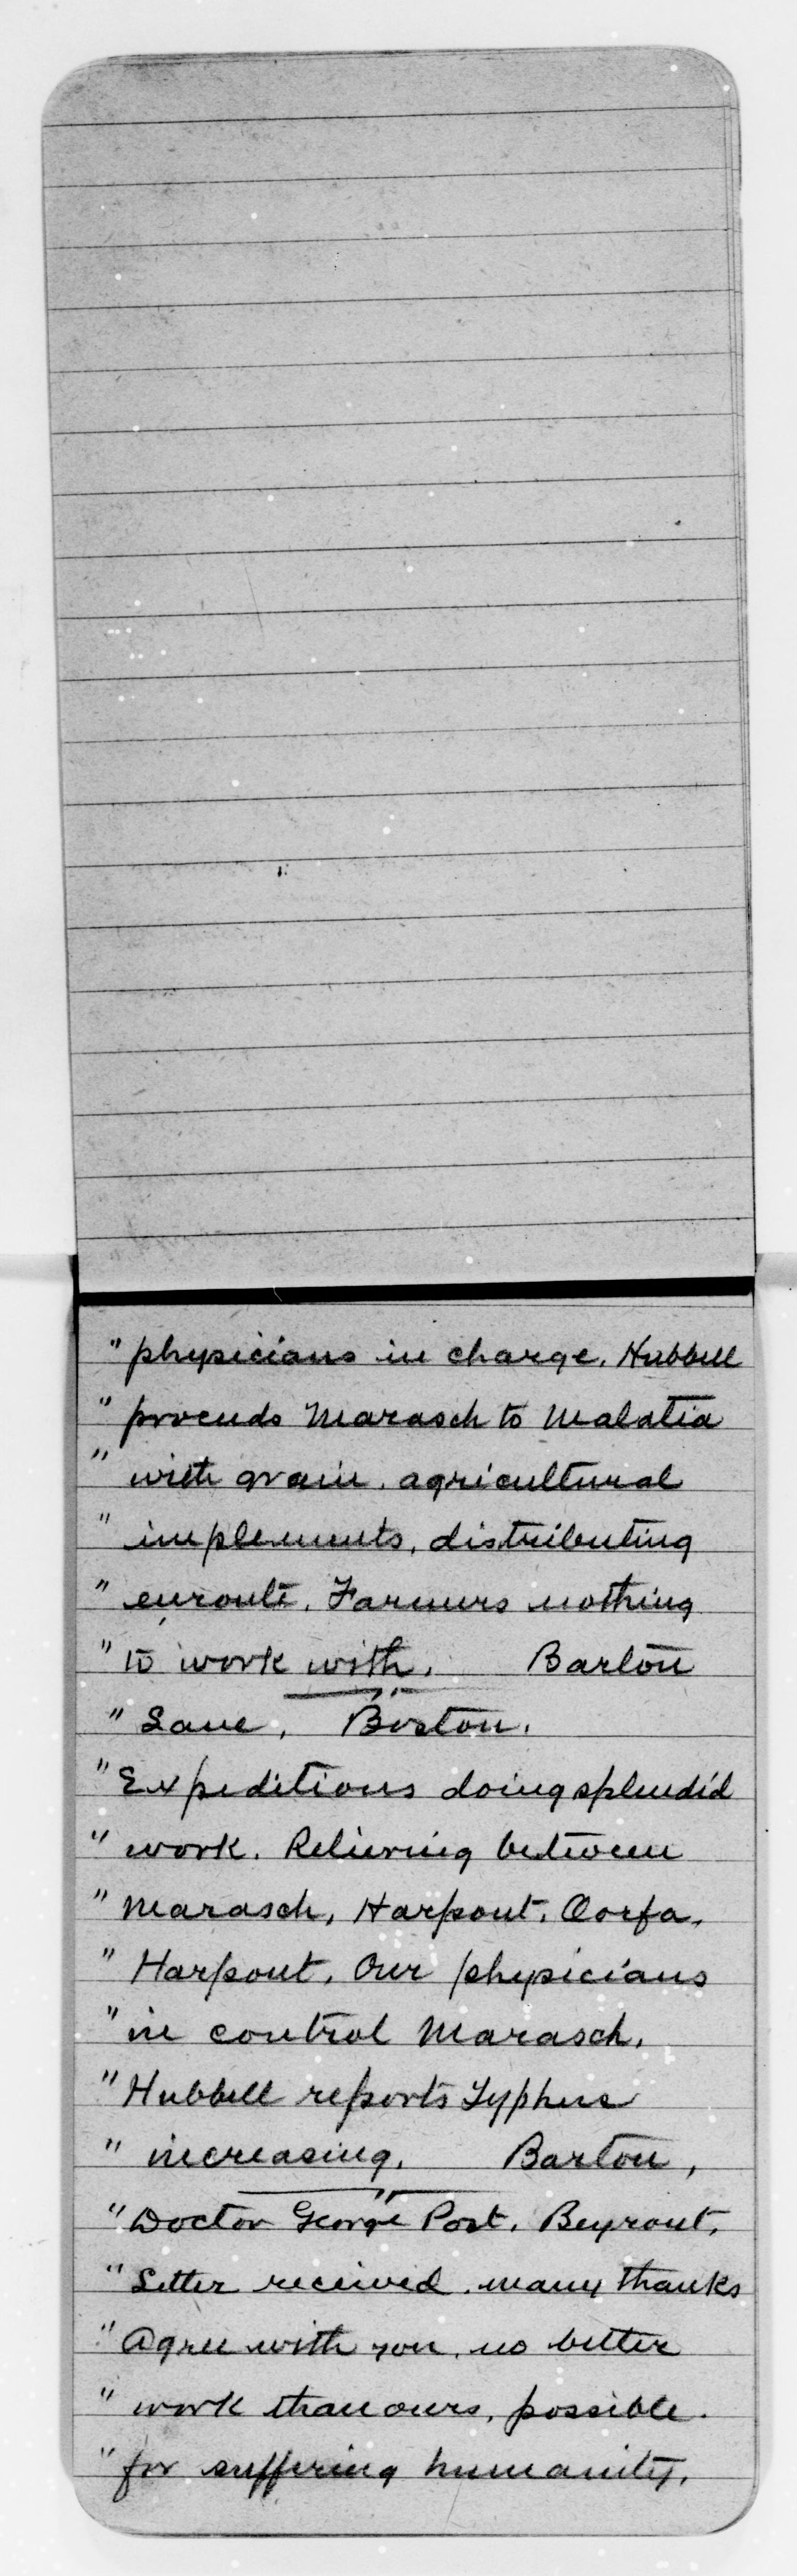 " physicians in charge. Hubbell
" proceeds Marasch to Malatia
" with grain. agricultural
" implements, distributing
" enroute. Farmers nothing
" to work with. Barton
" Lane, Boston.
" Expeditions doing splendid
" work. Relieving between
" Marasch, Harpout. Oorfa.
" Harpout. Our physicians
" in control Marasch.
" Hubbell reports Typhus
" increasing. Barton,
" Doctor George Post. Beyrout.
" Letter received. many thanks
" Agree with you, no better
" work than ours, possible.
" for suffering humanity.